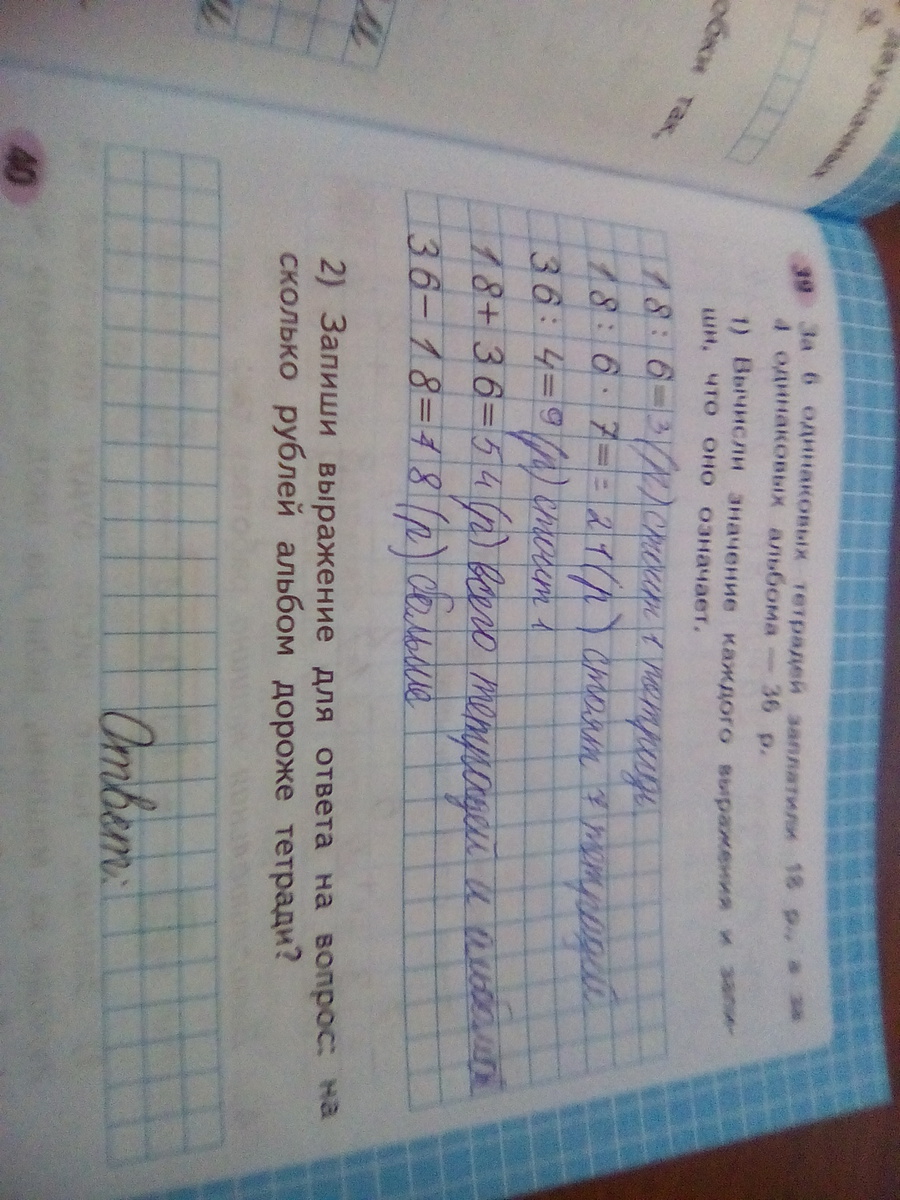 двузначных
я.
обки так,
ш
ш
39 За 6 одинаковых тетрадей заплатили 18 р., а за
4 одинаковых альбома — 36 р.
1) Вычисли значение каждого выражения и запи-
ши, что оно означает.
18 : 6 = 3 (р) стоит 1 тетрадь
18 : 6 · 7 = = 21 (р) стоят 7 тетрадей
36 : 4 = 9 (р) стоит 1
18 + 36 = 54 (р) всего тетрадей и альбомы
36 - 18 = 18 (р) больше
2) Запиши выражение для ответа на вопрос: на
сколько рублей альбом дороже тетради?
Ответ:
40